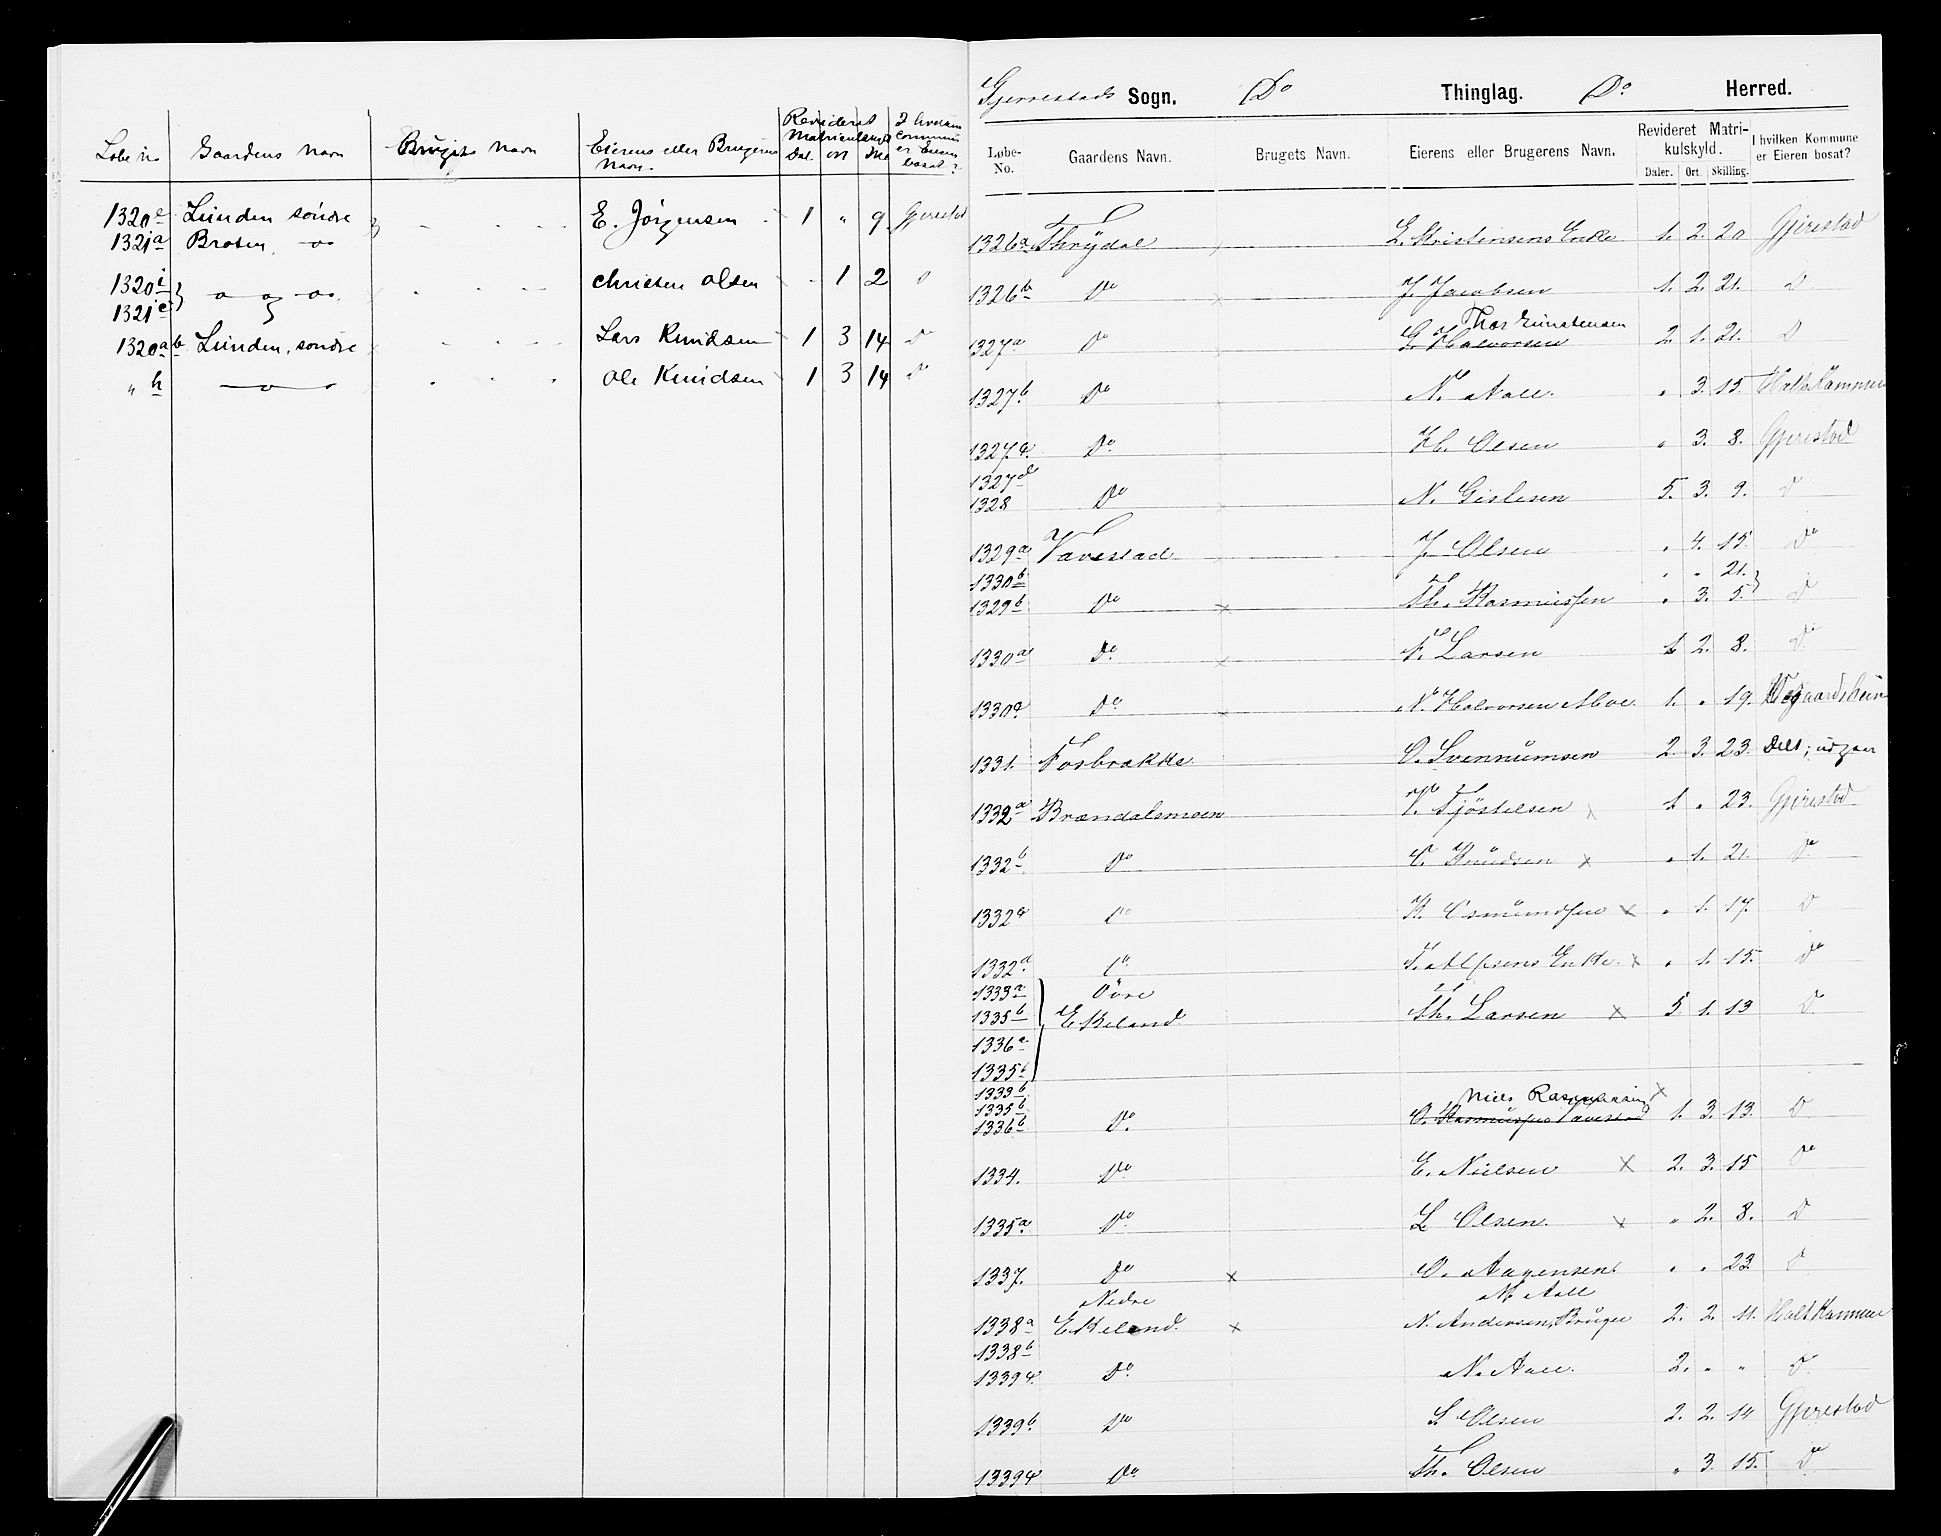 Løbe No Gaardens Navn Brugets Navn Eierens eller Brugerens Navn. Revideret Matrikulskyld Dal. Ort Sk. I hvilken Commune er Eieren bosat?
1320e Lunden søndre E. Jörgensen 1 " 9 Gjerestad
1321a Braten, -o-
1320i } -o- og -o-. Christen Olsen - 1 2 D
1321e
1320ab Lunden, søndre Lars Knudsen 1 3 14 Do
" h -o- Ole Knudsen 1 3 14 Do
Gjerrestads Sogn. Do Thinglag. Do Herred.
Løbe-No. Gaardens Navn. Brugets Navn. Eierens eller Brugerens Navn. Revideret Matrikulskyld. Daler. Ort. Skilling. I hvilken Kommune er Eieren bosat?
1326a Thrydal L. Kristensens Enke 1. 2. 20 Gjerestad
1326b Do J. Jacobsen 1. 2. 21. D
Thor Gunstensen
1327a Do G. Halvorsen 2. 1. 21. D
1327b Do N. Aall. " 3. 15. Holt Kommune
1327c. Do H. Olsen " 3. 8. Gjerestad
1327d
1328 Do N. Gislesen 5. 3. 9. D
1329a Vavestad J. Olsen " 4. 15. Do
1330b " " 21.
1329b Do Th. Rasmussen " 3. 5. D
1330a Do T. Larsen 1. 2. 8. Do
1330c Do N. Halvorsen Moe. 1. " 19. Vegaardsheien
1331. Fosbrække O. Svennumsen 2. 3. 23. Delt; udgaar
1332a Brændalsmoen T. Tjöstelsen 1. " 23. Gjerestad
1332b Do O. Knudsen " 1. 21. Do
1332c Do K. Osmundsen " 1. 17. D
1332d Do T. Alfsens Enke. " 1. 15. Do
1333a Övre
1335b Ekeland Th. Larsen 5. 1. 13 D
1336a
1335b
1333b Niels Rasmussen
1335b
1336b Do O. Rasmussen Vavestad 1. 3. 13. D
1334. Do E. Nielsen 2. 3. 15 Do
1335a Do L Olsen. " 2. 8. D
1337. Do O. Aagensen. " " 23 D
Nedre N. Aall
1338a Ekeland. N. Andersen, Bruger 2. 2. 11. Holt Kommune
1338b
1339a Do N. Aall. 2. " " D
1339b Do S. Olsen 2. 2. 14 Gjerestad
1339c Do Th. Olsen " 3. 15. Do